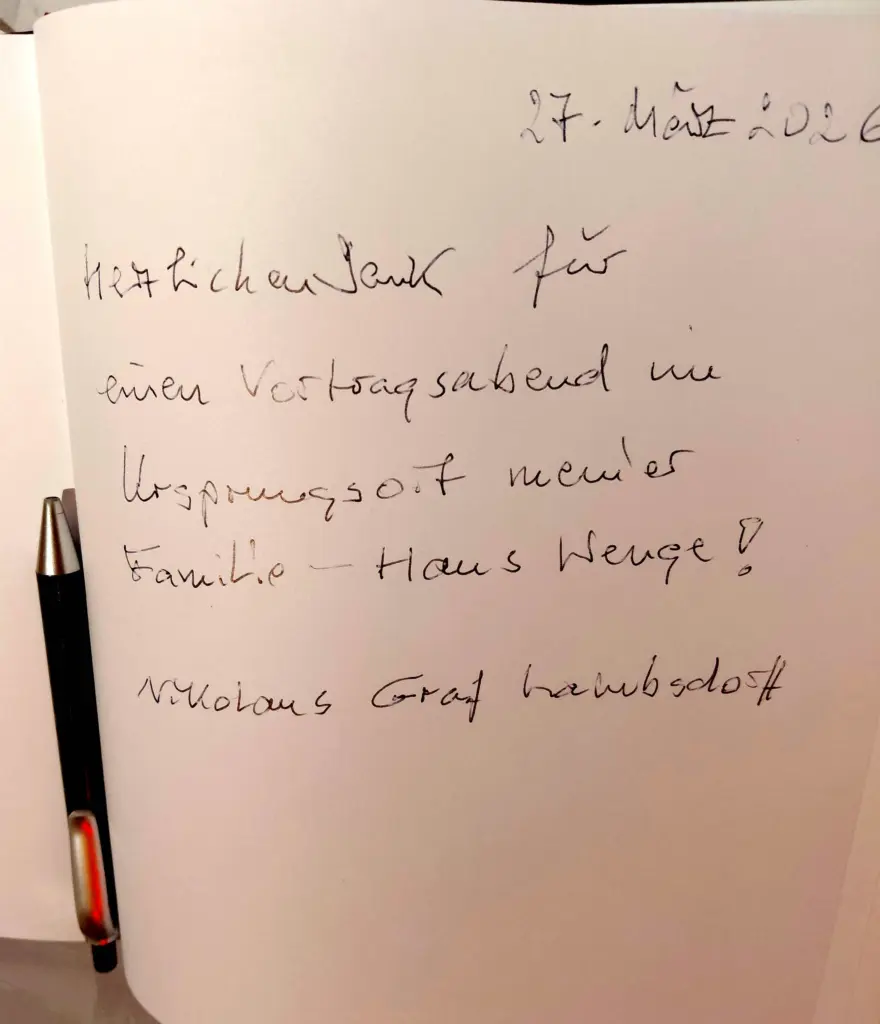 27. März 2026
Herzlichen Dank für
einen Vortragsabend im
Ursprungsort meiner
Familie – Haus Wenge!
Nikolaus Graf Lambsdorff